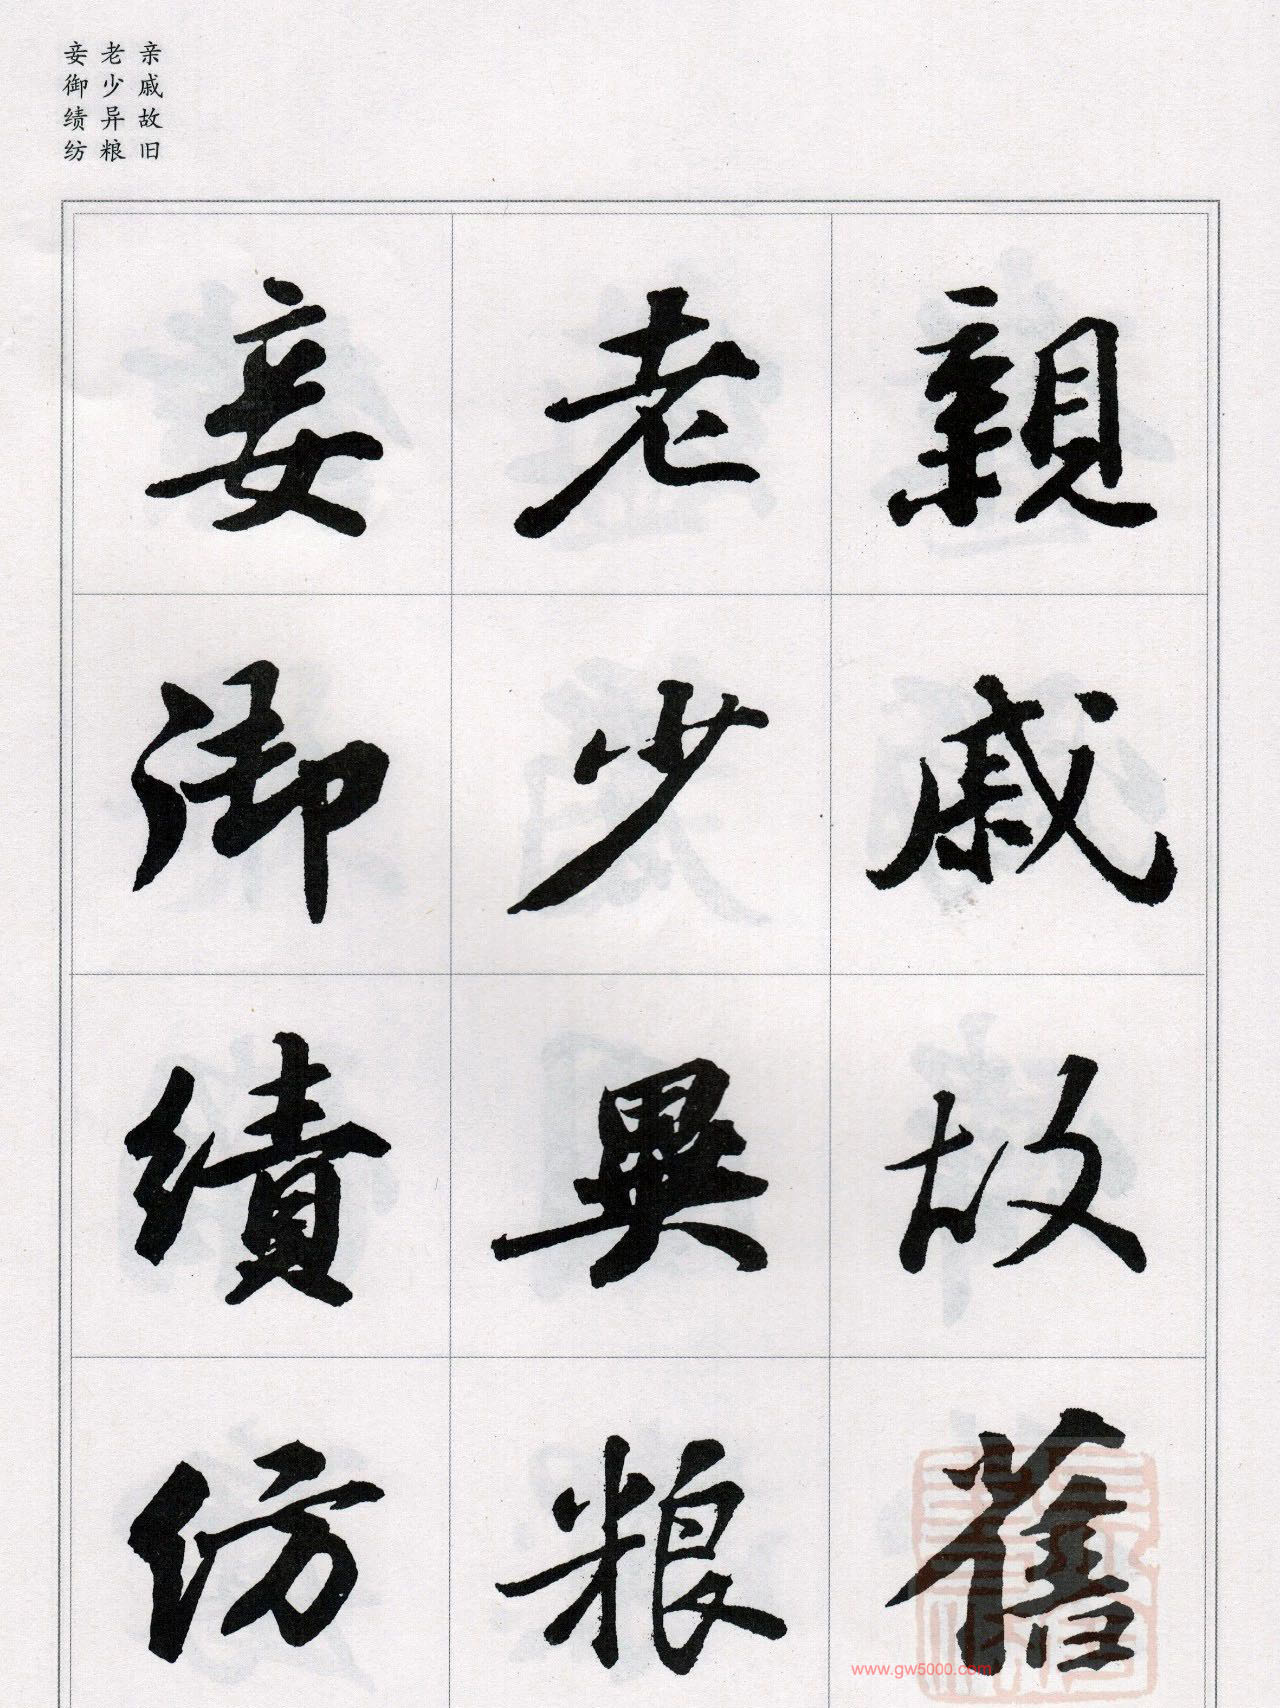 亲戚故旧
老少异粮
妾御绩纺
親戚故舊
老少異粮
妾御績紡
www.gw5000.com